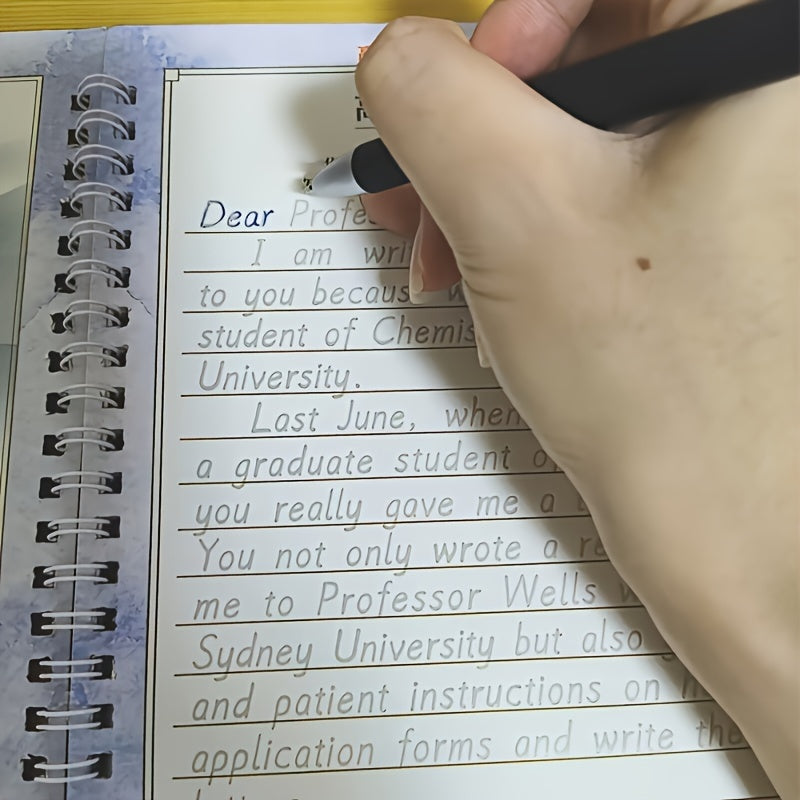 Dear
I am
to you
student of
University.
Last June, when
a graduate student
you really gave me a
You not only wrote a
me to Professor Wells
Sydney University but also
and patient instructions on
application forms and write the